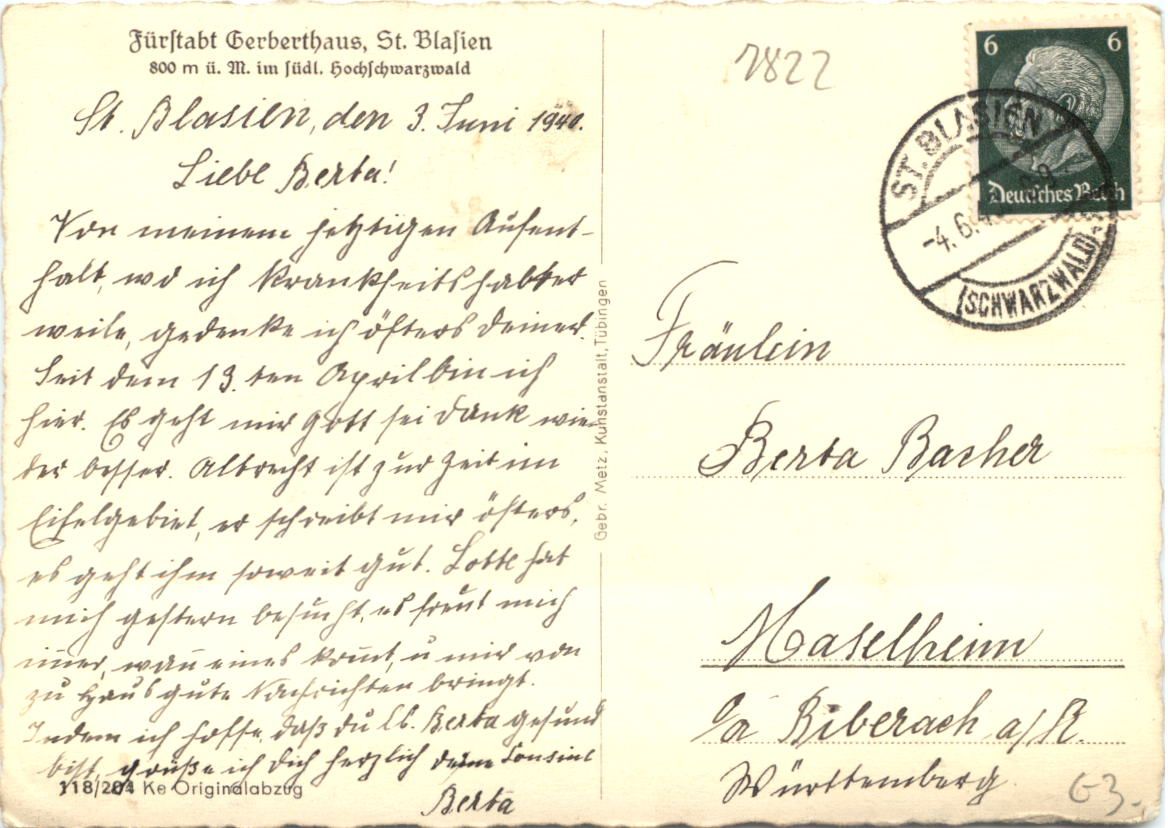 Fürstabt Gerberthaus, St. Blasien
800 m ü. M. im südl. Hochschwarzwald
St. Blasien, den 3. Juni 1940.
Liebe Berta!
Von meinem jetzigen Aufent-
halt, wo ich krankheitshalber
weile, gedenke ich öfters deiner.
Seit dem 13. ten April bin ich
hier. Es geht mir Gott sei Dank wie-
der besser. Albrecht ist zur Zeit im
Eifelgebiet, er schreibt mir öfters,
es geht ihm soweit gut. Lotte hat
mich gestern besucht, es freut mich
im̄er, wan̄ eines kom̄t, u mir von
zu Haus gute Nachrichten bringt.
Indem ich hoffe, daß du lb. Berta gesund
bist, grüße ich dich herzlich deine Cousine
Berta
118/204 Ke Originalabzug
Gebr. Metz, Kunstanstalt, Tübingen
7822
6 6
Deutsches Reich
ST. BLASIEN
-4.6.40
(SCHWARZWALD)
Fräulein
Berta Bacher
Maselheim
Biberach a/R.
Württemberg
G3.-